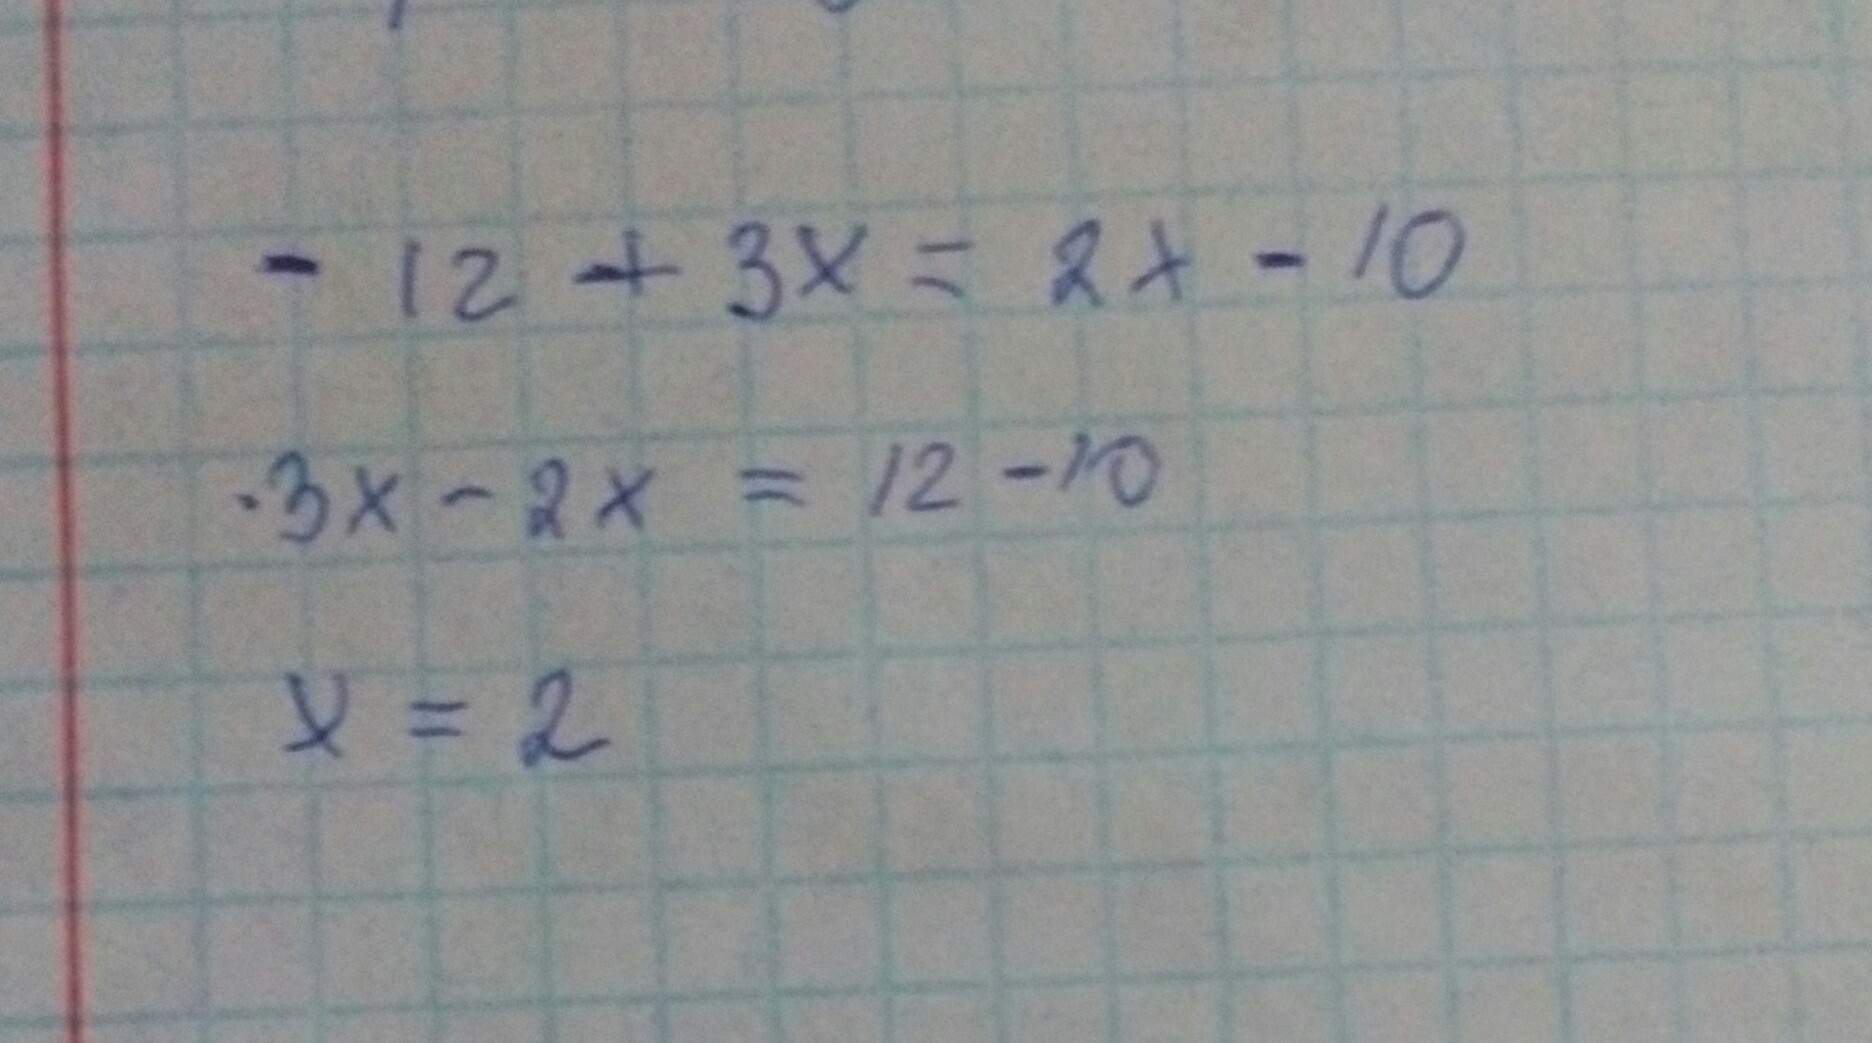 - 12 + 3x = 2x - 10
3x - 2x = 12 - 10
x = 2